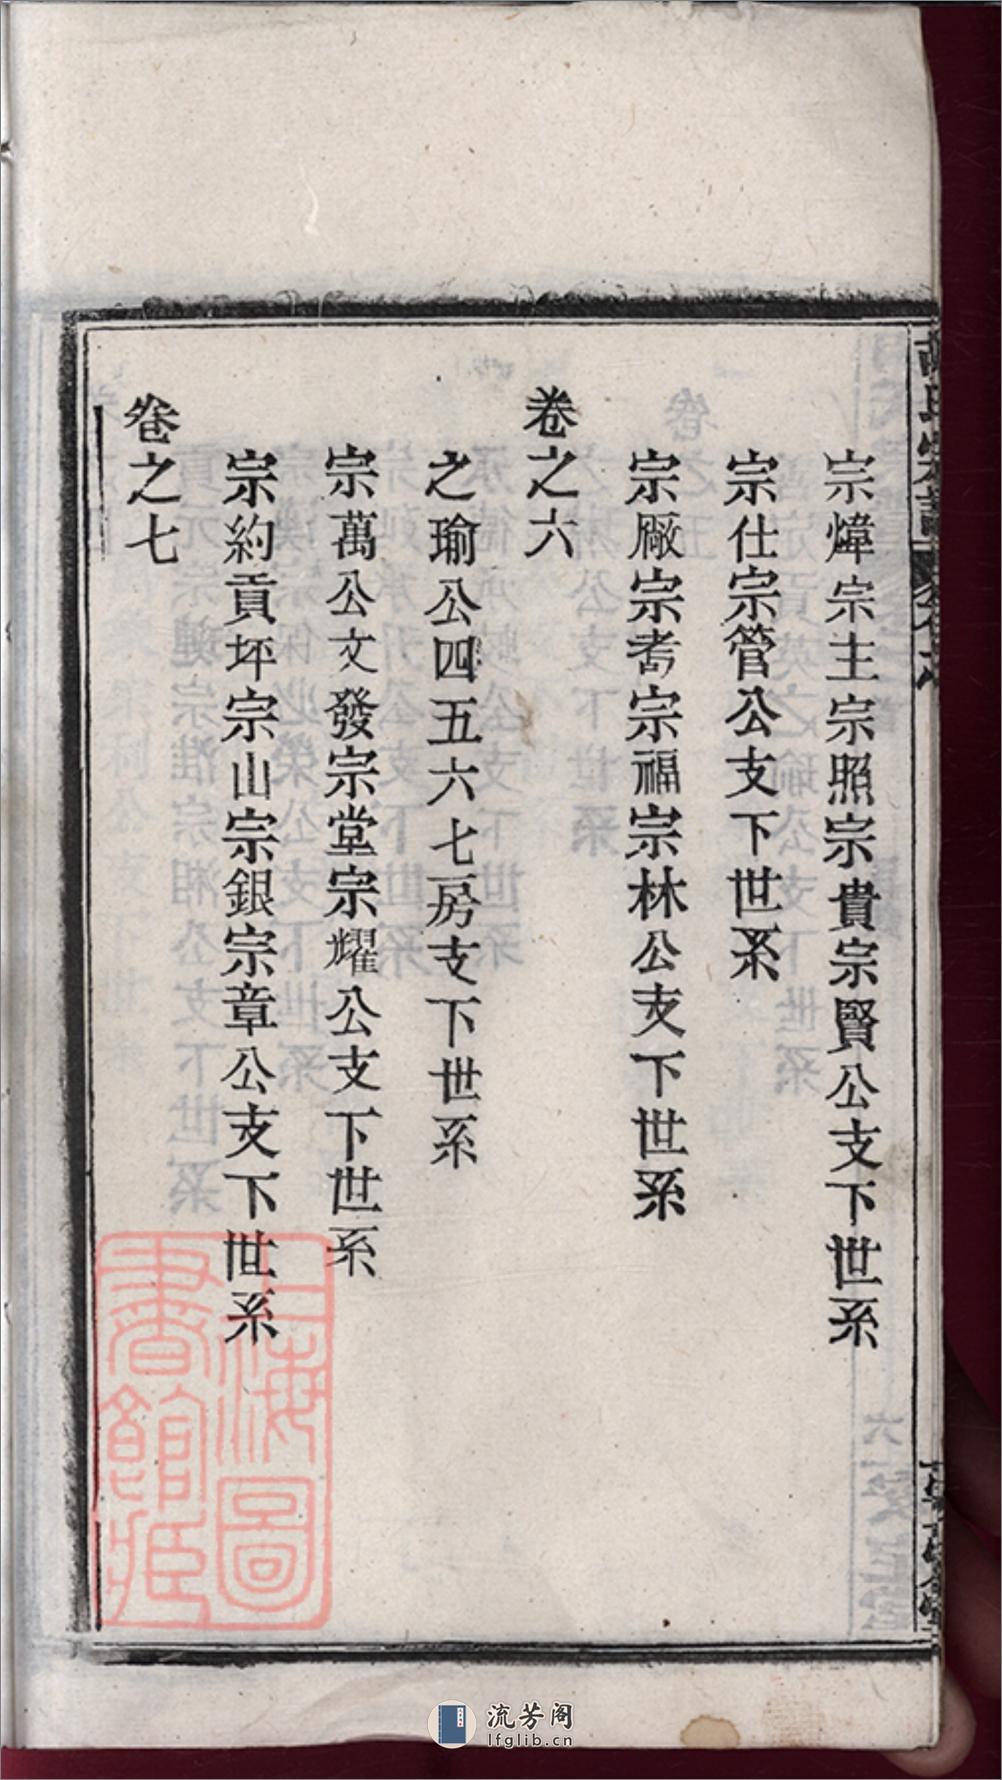 宗煒宗主宗照宗貴宗賢公支下世系
宗仕宗管公支下世系
宗厰宗耈宗福宗林公支下世系
卷之六
之瑜公四五六七房支下世系
宗萬公文發宗堂宗耀公支下世系
宗約貢坪宗山宗銀宗章公支下世系
卷之七
上海圖書館藏
流芳阁
lfglib.cn